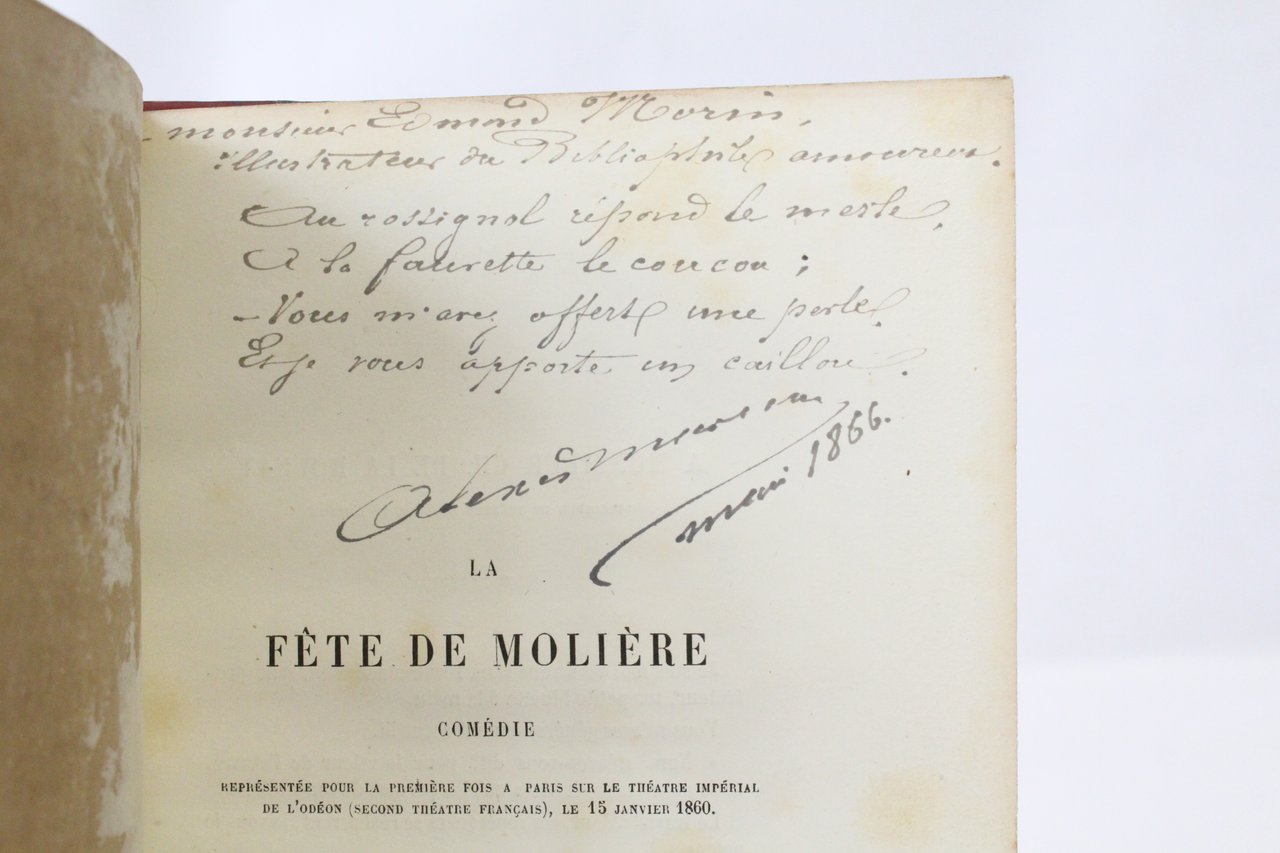 monsieur Edmond Morin,
illustrateur du Bibliophile amoureux.
Au rossignol répond le merle,
A la fauvette le coucou ;
– Vous m'avez offert une perle,
Et je vous apporte un caillou.
mai 1866.
LA
FÊTE DE MOLIÈRE
COMÉDIE
REPRÉSENTÉE POUR LA PREMIÈRE FOIS A PARIS SUR LE THÉATRE IMPÉRIAL
DE L'ODÉON (SECOND THÉATRE FRANÇAIS), LE 15 JANVIER 1860.